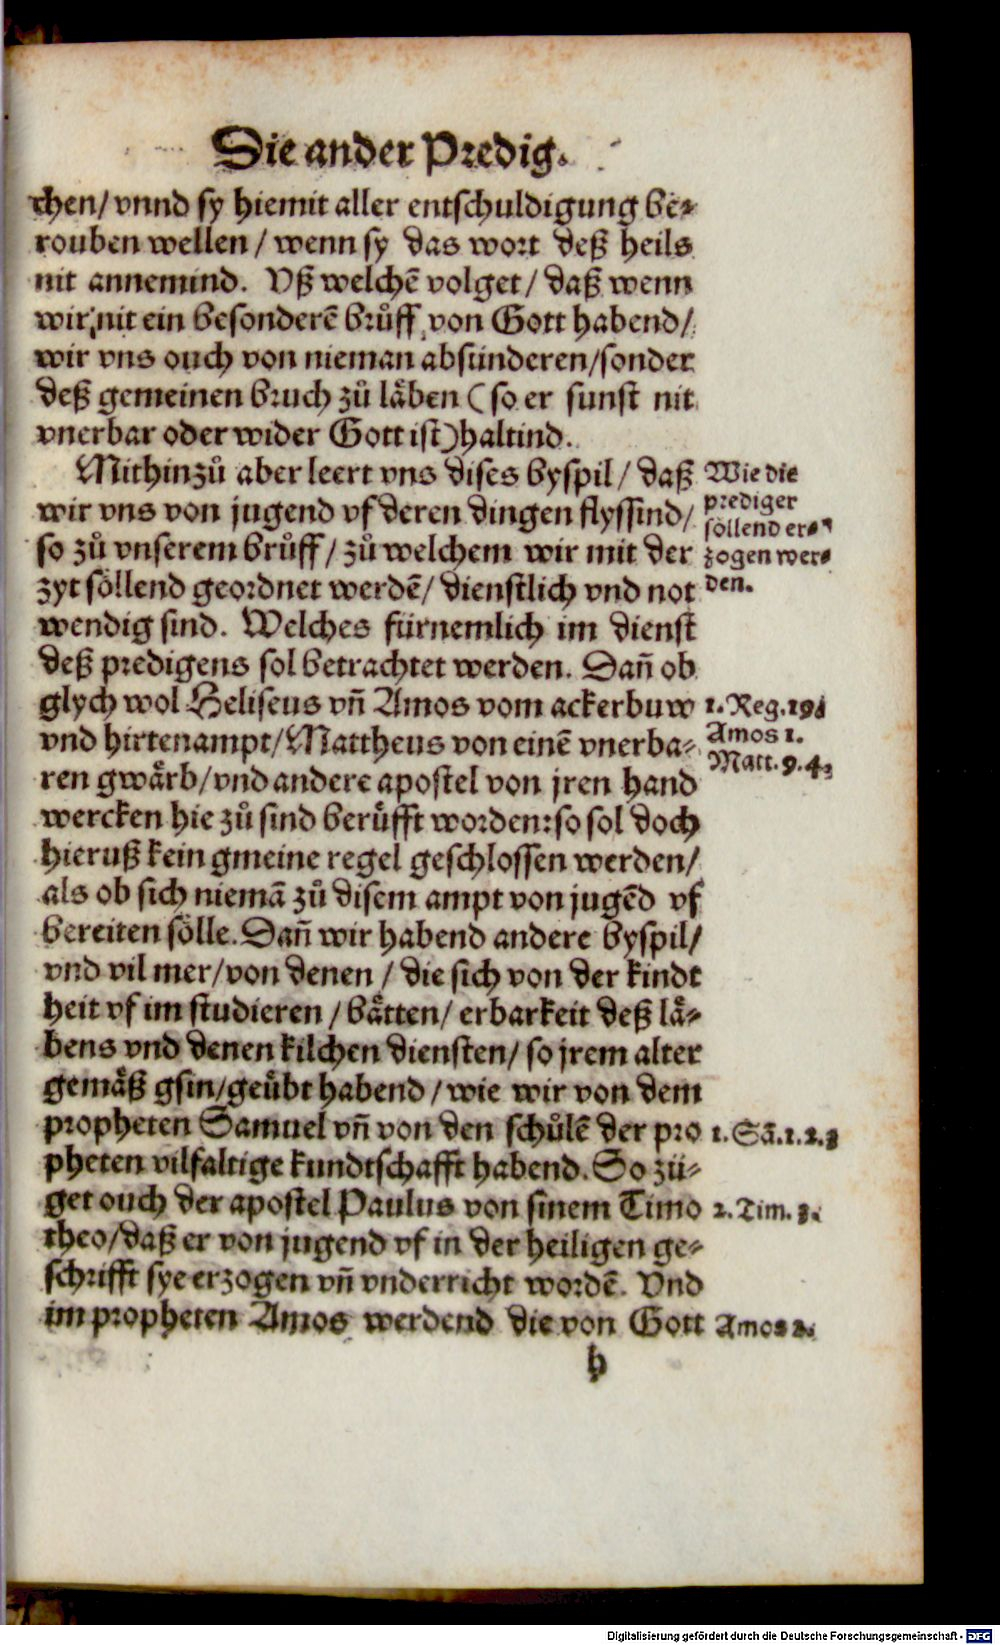 Die ander Predig.
chen/ vnnd sy hiemit aller entschuldigung be⸗
rouben wellen / wenn sy das wort deß heils
nit annemind. Vß welchē volget/ daß wenn
wir nit ein besonderē brůff von Gott habend/
wir vns ouch von nieman absünderen/sonder
deß gemeinen bruch zů läben (so er sunst nit
vnerbar oder wider Gott ist) haltind.
Mithinzů aber leert vns dises byspil/ daß
wir vns von jugend vf deren dingen flyssind/
so zů vnserem brůff/ zů welchem wir mit der
zyt söllend geordnet werdē/ dienstlich vnd not
wendig sind. Welches fürnemlich im dienst
deß predigens sol betrachtet werden. Dañ ob
glych wol Heliseus vñ Amos vom ackerbuw
vnd hirtenampt/Mattheus von einē vnerba⸗
ren gwärb/vnd andere apostel von jren hand
wercken hie zů sind berüfft worden: so sol doch
hieruß kein gmeine regel geschlossen werden/
als ob sich niemā zů disem ampt von jugēd vf
bereiten sölle. Dañ wir habend andere byspil/
vnd vil mer/von denen / die sich von der kindt
heit vf im studieren / bätten/ erbarkeit deß lä⸗
bens vnd denen kilchen diensten/ so jrem alter
gemäß gsin/geübt habend/ wie wir von dem
propheten Samuel vñ von den schůlē der pro
pheten vilfaltige kundtschafft habend. So zü⸗
get ouch der apostel Paulus von sinem Timo
theo/daß er von jugend vf in der heiligen ge⸗
schrifft sye erzogen vñ vnderricht wordē. Vnd
im propheten Amos werdend die von Gott
h
Wie die
prediger
söllend er⸗
zogen wer⸗
den.
1. Reg.19.
Amos 1.
Matt. 9. 4.
1. Sā.1.2.3
2. Tim. 3.
Amos 2.
Digitalisierung gefördert durch die Deutsche Forschungsgemeinschaft - DFG